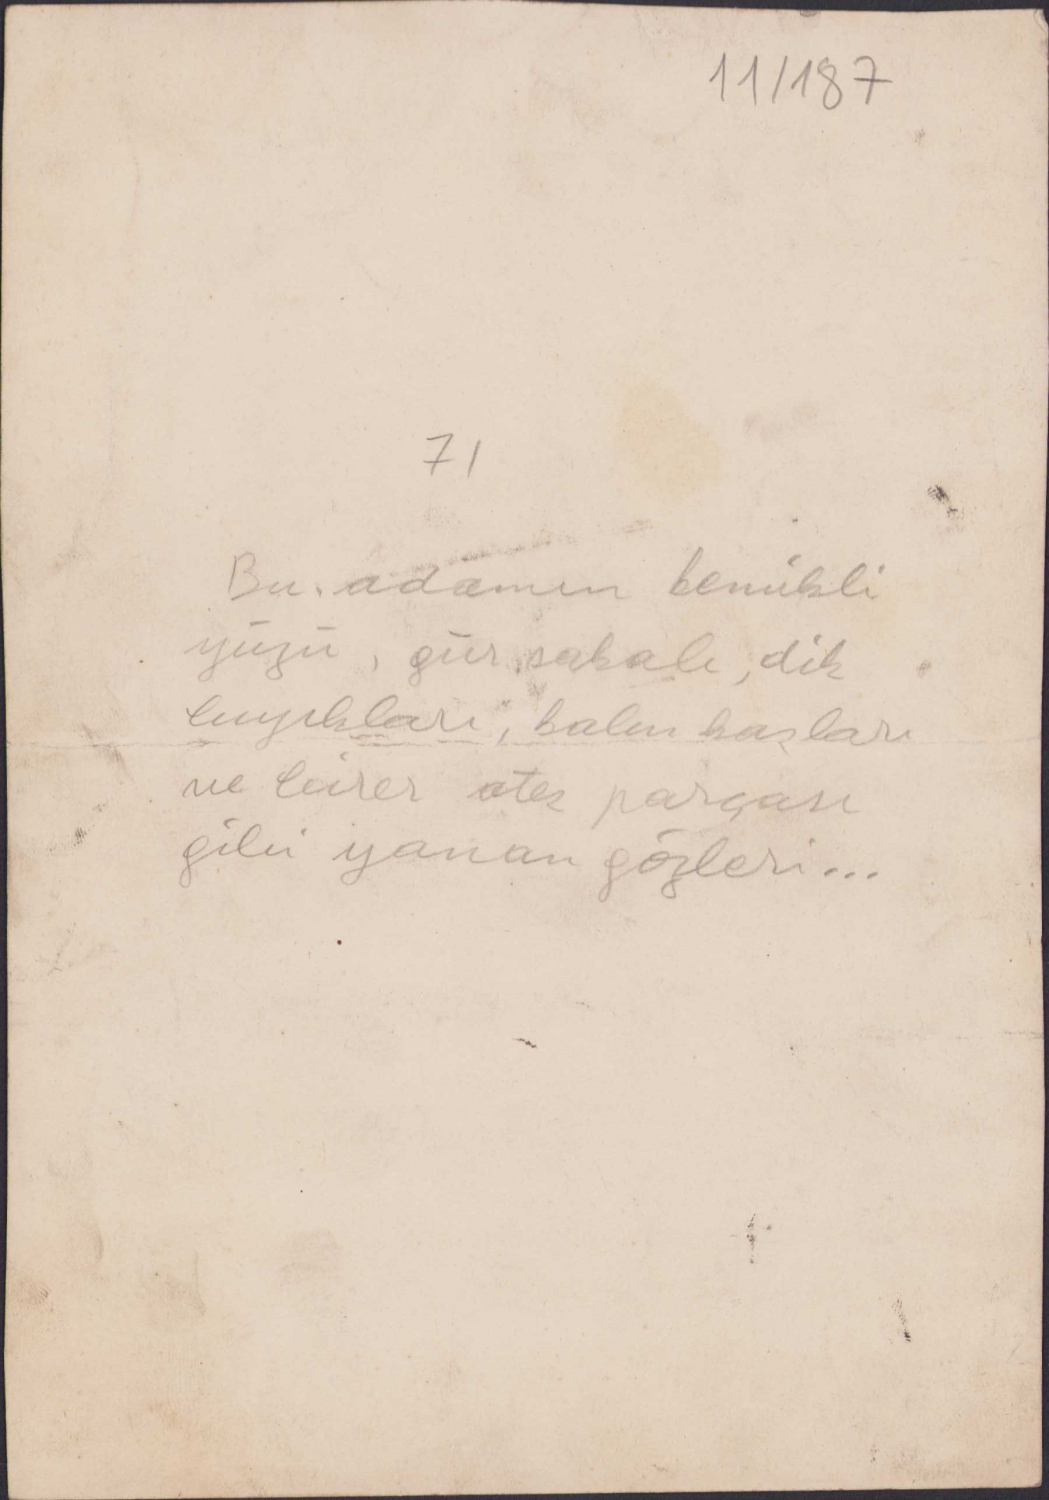 11/187
71
Bu adamın kemikli
yüzü, gür sakalı, dik
bıyıkları, kalın kaşları
ve birer ateş parçası
gibi yanan gözleri...